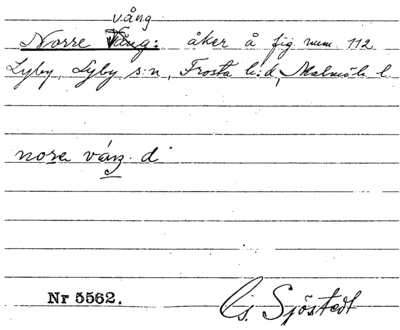 vång
Norre Vång: åker å fig num. 112
Lyby, Lyby s:n, Frosta h:d, Malmöh. l.
nora váng. d
Nr 5562. G. Sjöstedt